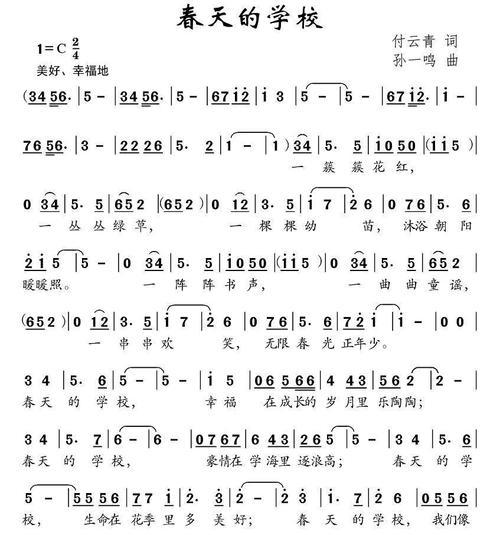 春天的学校
1=C 2/4
付云青 词
美好、幸福地
孙一鸣 曲
(34 56. | 5 - | 5 - | 52 34. | 3 - | 3 - | 67 i2 | i 3 | 5 - | 5 - |
76 56. | 3 - | 22 56. | 5. 2 | 1 - | 1 - ) | 34 | 5. 5 | i050 | (i i 5) |
一 簇 簇花红,
0 34 | 5. 5 | 652 | (652) | 0 12 | 3. 5 | i 7 | 26 | 0 76 | 5. 6 |
一 丛 丛绿草, 一 棵 棵幼 苗, 沐浴 朝阳
2 i 5 | 5 - | 0 34 | 5. 5 | i050 | (i i 5) | 0 34 | 5. 5 | 652 |
暖暖照。 一 阵 阵书声, 一 曲 曲童谣,
(652) | 0 12 | 3. 5 | i 7 | 2 6 | 0 76 | 5. 3 | 7 2 i | i - | i 0 |
一 串 串欢 笑, 无限 春 光正年少。
3 4 | 5. 6 | 5 - | 5 - | i 5 | 06 5 66 | 0 4 5 | 3 2 1 | 2 - | 2 - |
春天 的 学校, 幸福 在成长的 岁 月里 乐陶陶;
3 4 | 5. 7 | 6 - | 6 - | 0767 | 0 i 2 i | 76 5 6 | 3 - | 3 4 | 5. 6 |
春天 的 学校, 豪情在 学海里 逐浪高; 春天 的 学
5 - | 5556 | 0 i 7 6 | 5. 7 | 2 i | i - | 5 5 | 3. 2 | i - | i i 56 |
校, 生命在 花季里 多 美好; 春天 的 学校, 我们像